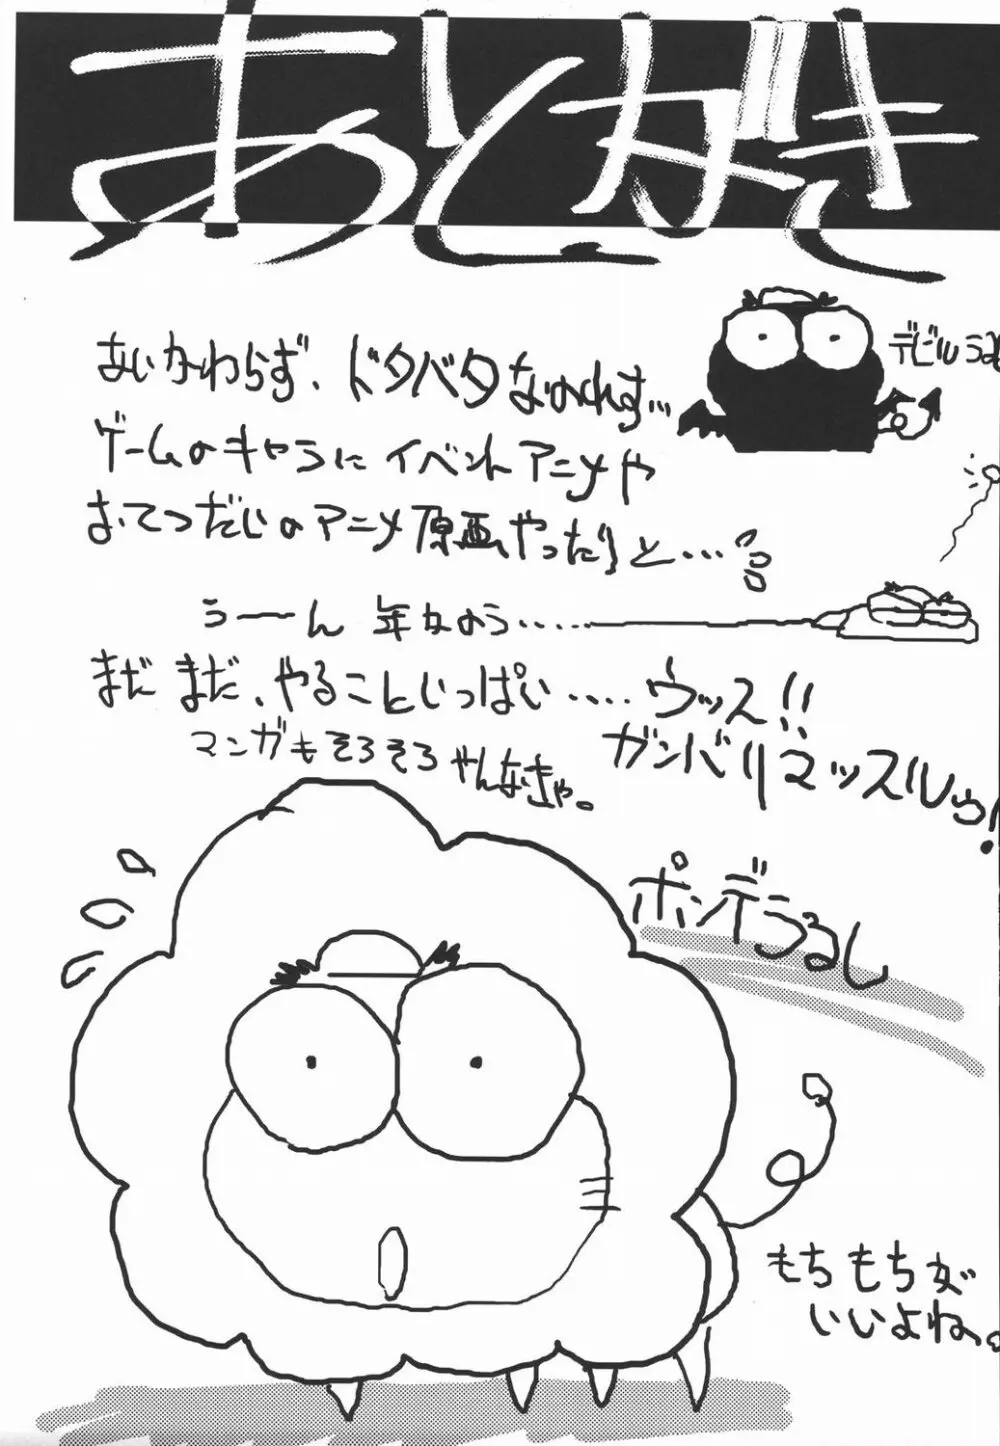 あとがき
あいかわらず、ドタバタなのれす…
デビルうる
ゲームのキャラにイベントアニメや
おてつだいのアニメ原画やったりと…
うーーん 年かのう……
まだまだ、やることいっぱい…. ウッス!!
マンガもそろそろやんなきゃ。
ガンバリマッスルゥ!
ポンデうるし
もちもちが
いいよね。